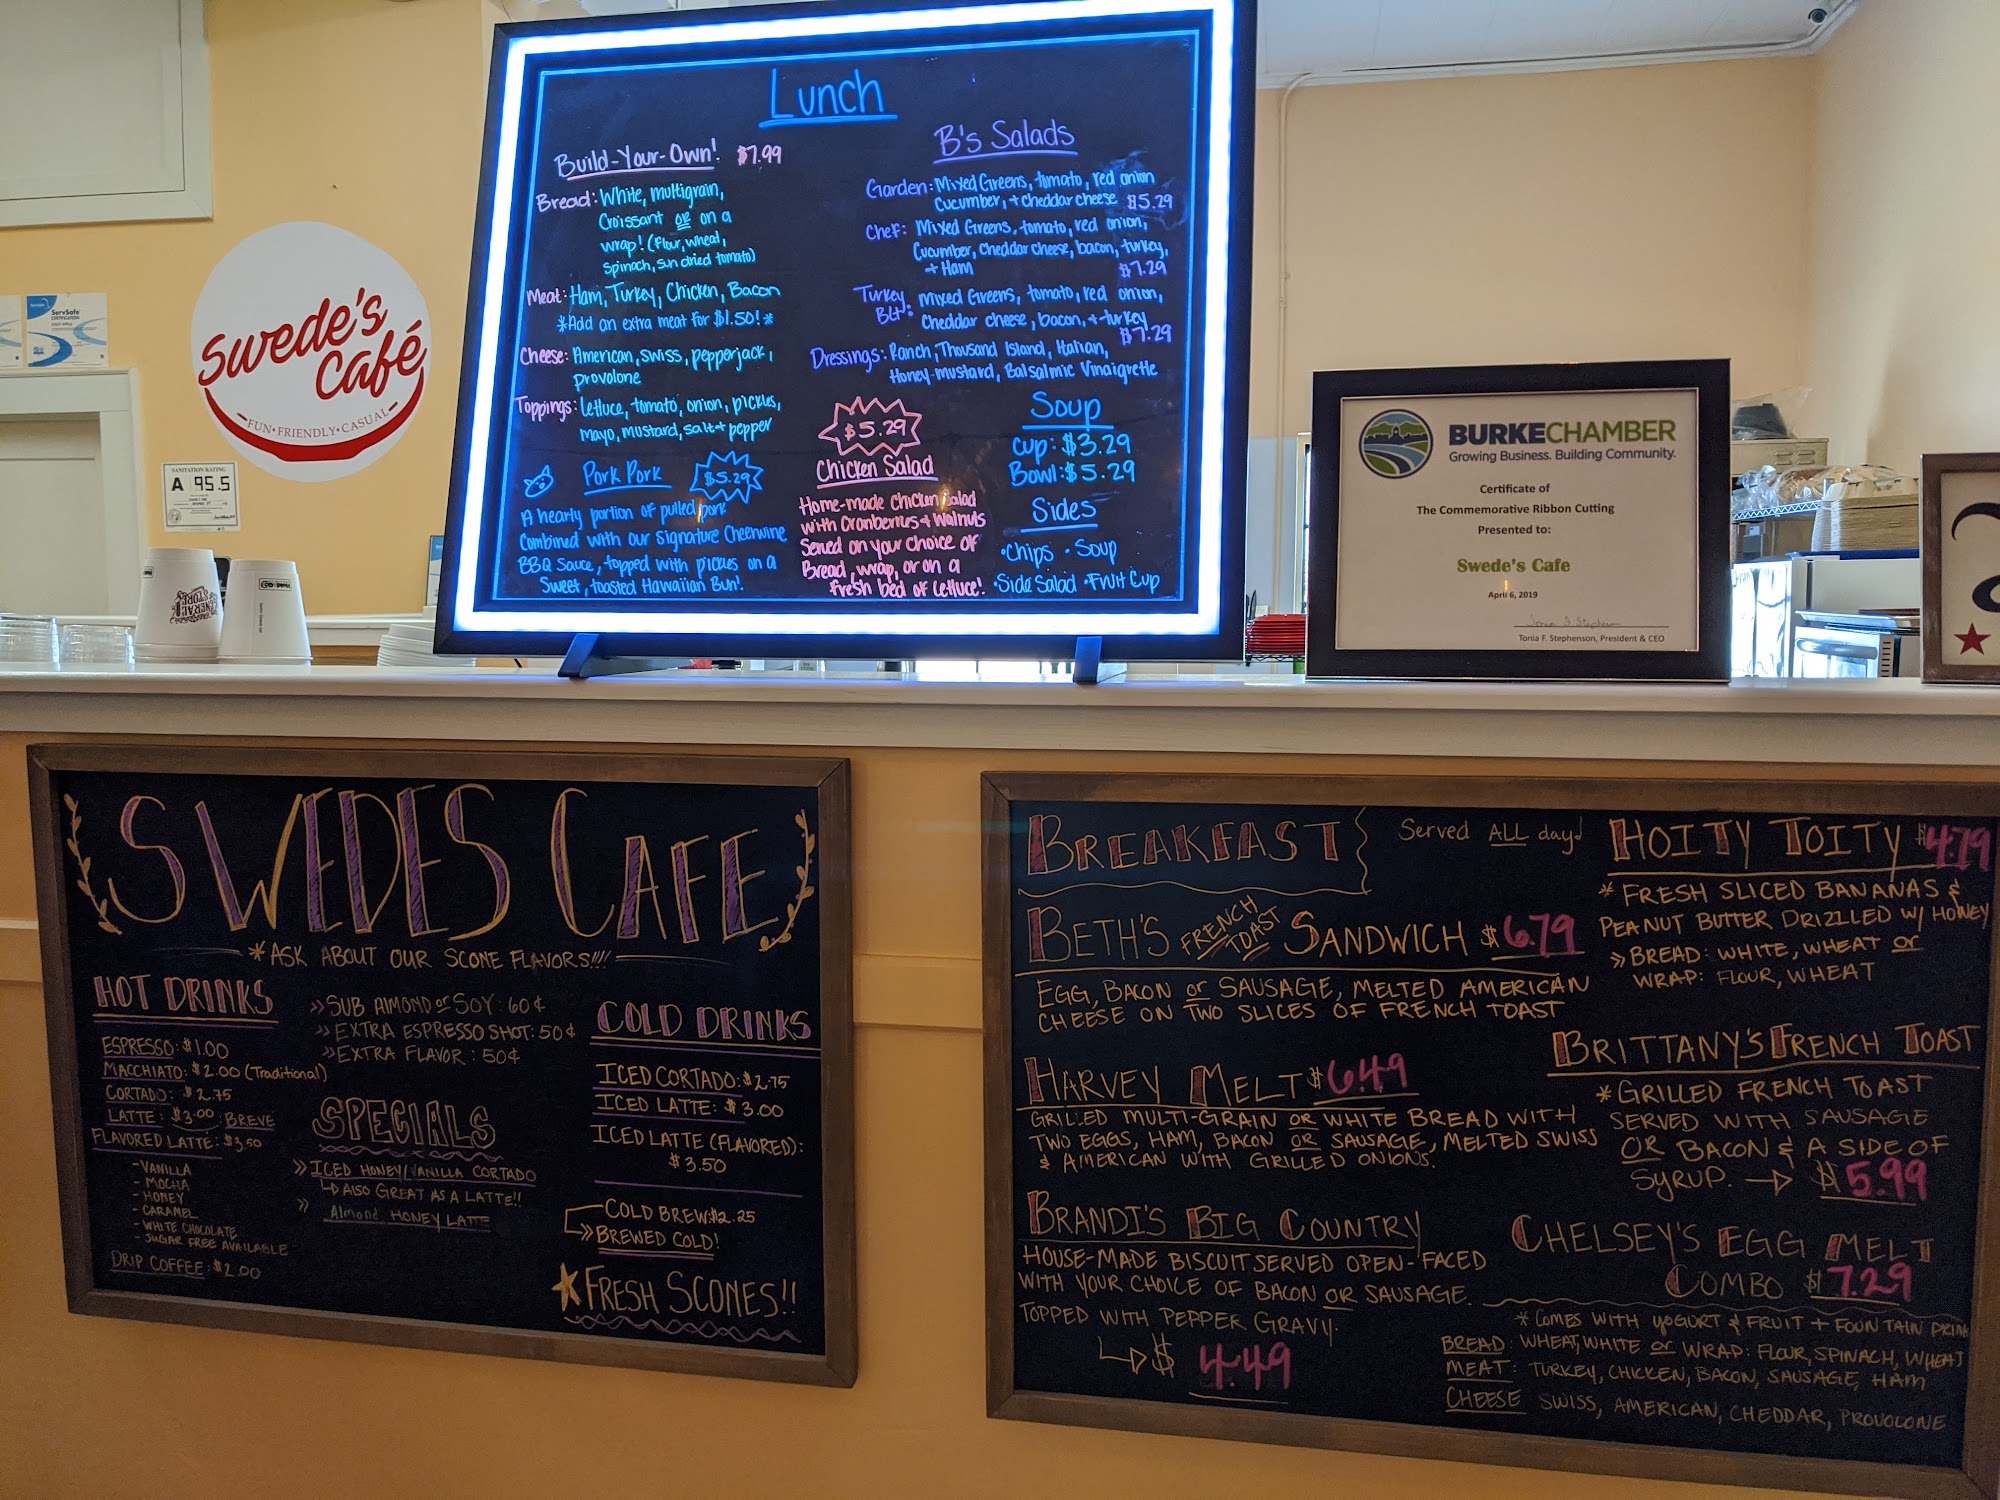 Lunch
Build-Your-Own! $7.99
Bread: White, multigrain,
Croissant or on a
wrap! (flour, wheat,
spinach, sun dried tomato)
Meat: Ham, Turkey, Chicken, Bacon
*Add an extra meat for $1.50!*
Cheese: American, swiss, pepperjack,
provolone
Toppings: lettuce, tomato, onion, pickles,
mayo, mustard, salt + pepper
Pork Pork $5.29
A hearty portion of pulled pork
combined with our signature Cheerwine
BBQ Sauce, topped with pickles on a
Sweet, toasted Hawaiian Bun!
B's Salads
Garden: Mixed Greens, tomato, red onion
Cucumber, + cheddar cheese $5.29
Chef: Mixed Greens, tomato, red onion,
Cucumber, cheddar cheese, bacon, turkey,
+ Ham $7.29
Turkey BLT: Mixed Greens, tomato, red onion,
Cheddar cheese, bacon, + turkey
$7.29
Dressings: Ranch, Thousand Island, Italian,
Honey-mustard, Balsalmic Vinaigrette
$5.29
Chicken Salad
Home-made chicken salad
with Cranberries + Walnuts
Served on your choice of
Bread, wrap, or on a
fresh bed of lettuce!
Soup
Cup: $3.29
Bowl: $5.29
Sides
•Chips •Soup
•Side Salad •Fruit Cup
Swede's
Café
-FUN•FRIENDLY•CASUAL-
ServSafe
CERTIFICATION
SANITATION RATING
A 95.5
GENERAL
STORE
BURKECHAMBER
Growing Business. Building Community.
Certificate of
The Commemorative Ribbon Cutting
Presented to:
Swede's Cafe
April 6, 2019
Tonia F. Stephenson, President & CEO
SWEDES CAFE
*ASK ABOUT OUR SCONE FLAVORS!!!
HOT DRINKS
ESPRESSO: $1.00
MACCHIATO: $2.00 (Traditional)
CORTADO: $2.75
LATTE: $3.00 BREVE
FLAVORED LATTE: $3.50
- VANILLA
- MOCHA
- HONEY
- CARAMEL
- WHITE CHOCOLATE
- SUGAR FREE AVAILABLE
DRIP COFFEE: $2.00
» SUB ALMOND or SOY: 60¢
» EXTRA ESPRESSO SHOT: 50¢
» EXTRA FLAVOR: 50¢
SPECIALS
» ICED HONEY/VANILLA CORTADO
↳ ALSO GREAT AS A LATTE!!
» Almond HONEY LATTE
COLD DRINKS
ICED CORTADO: $2.75
ICED LATTE: $3.00
ICED LATTE (FLAVORED):
$3.50
COLD BREW: $2.25
» BREWED COLD!
FRESH SCONES!!
BREAKFAST Served ALL day!
BETH'S FRENCH TOAST SANDWICH $6.79
EGG, BACON or SAUSAGE, MELTED AMERICAN
CHEESE ON TWO SLICES OF FRENCH TOAST
HARVEY MELT $6.49
GRILLED MULTI-GRAIN OR WHITE BREAD WITH
TWO EGGS, HAM, BACON OR SAUSAGE, MELTED SWISS
& AMERICAN WITH GRILLED ONIONS.
BRANDI'S BIG COUNTRY
HOUSE-MADE BISCUIT SERVED OPEN-FACED
WITH YOUR CHOICE OF BACON OR SAUSAGE.
TOPPED WITH PEPPER GRAVY.
↳ $4.49
HOITY TOITY $4.79
* FRESH SLICED BANANAS &
PEANUT BUTTER DRIZZLED W/ HONEY
» BREAD: WHITE, WHEAT or
WRAP: FLOUR, WHEAT
BRITTANY'S FRENCH TOAST
* GRILLED FRENCH TOAST
SERVED WITH SAUSAGE
OR BACON & A SIDE OF
SYRUP. → $5.99
CHELSEY'S EGG MELT
COMBO $7.29
* COMES WITH YOGURT & FRUIT + FOUNTAIN DRINK
BREAD: WHEAT, WHITE or WRAP: FLOUR, SPINACH, WHEAT
MEAT: TURKEY, CHICKEN, BACON, SAUSAGE, HAM
CHEESE SWISS, AMERICAN, CHEDDAR, PROVOLONE